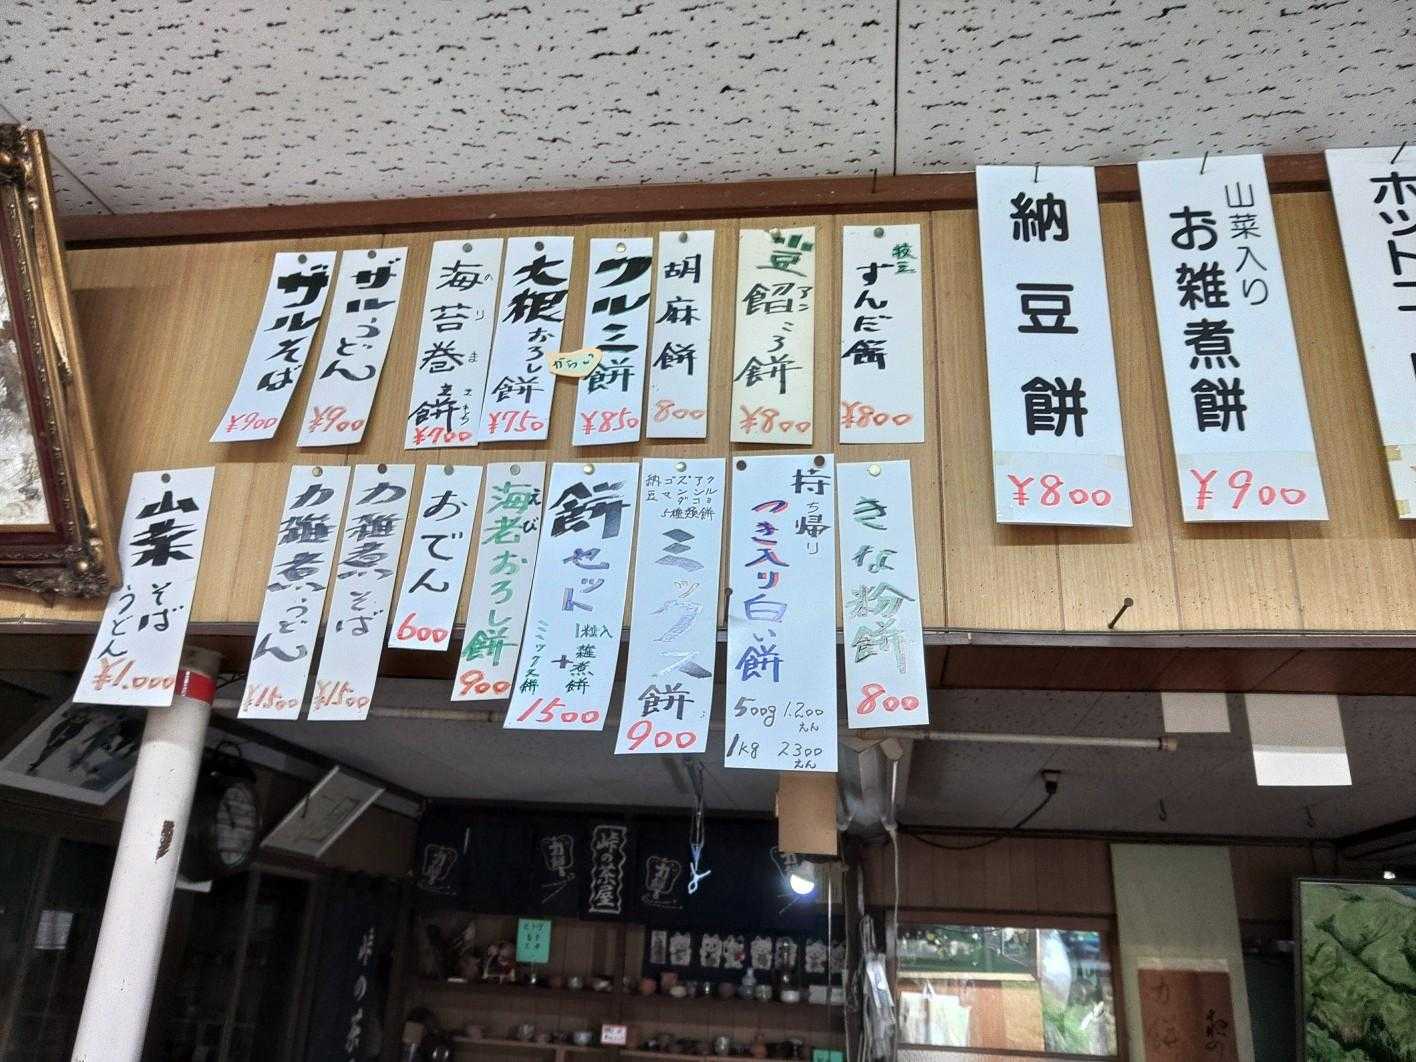 ザルそば
¥900
ザルうどん
¥900
海苔巻餅
のりま
¥700
大根おろし餅
¥750
からい
クルミ餅
¥850
胡麻餅
800
豆餡ころ餅
アン
¥800
枝豆
ずんだ餅
¥800
納豆餅
¥800
山菜入り
お雑煮餅
¥900
ホット
山菜
そば
うどん
¥1,000
力雑煮うどん
力雑煮そば
おでん
600
海老おろし餅
えび
900
餅セット
1粒入
雑煮餅
+
ミックス餅
1500
納豆
ゴマ
ズンダ
アンコ
クルミ
5種類餅
ミックス餅
900
持ち帰り
つき入り白い餅
500g 1.200えん
1kg 2300えん
きな粉餅
800
峠の茶屋
力餅
峠の茶